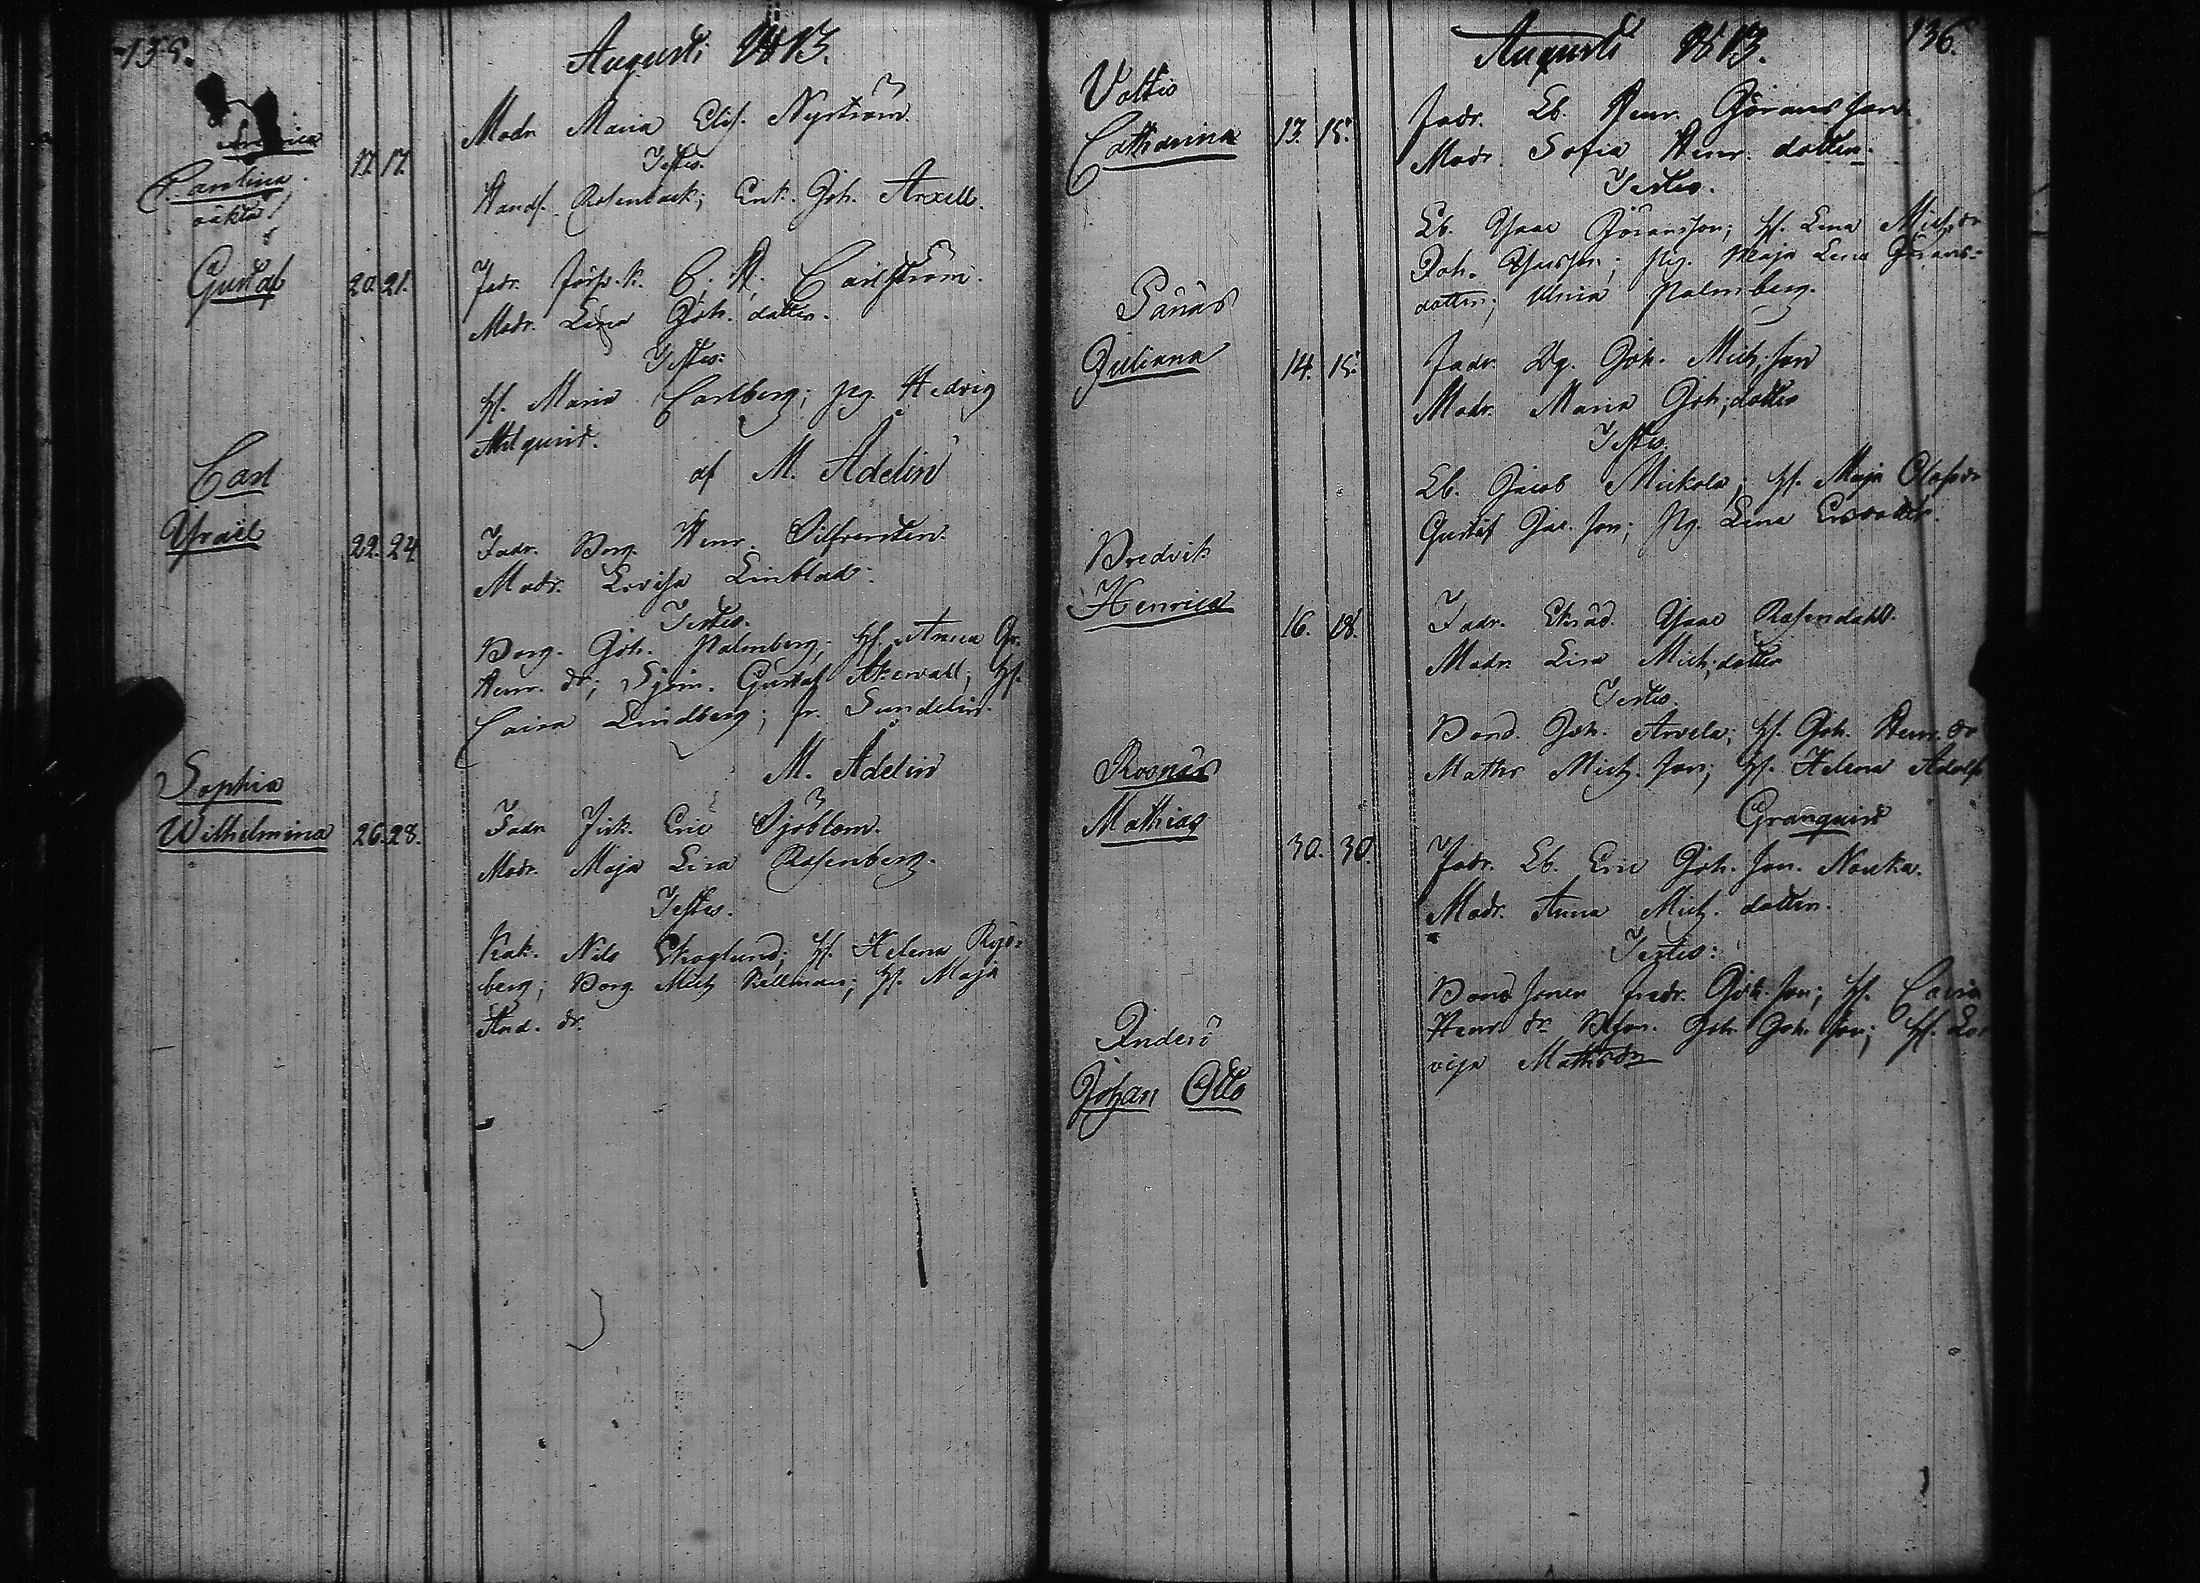 135.
Augusti 1813.
Carolina
17. 17.
Modr. Maria Elis. Nyström.
Testes.
Handl. Rosenback; Enk. Joh. Arxell.
Gustaf
20. 21.
Fadr. C. H. Carlström.
Modr. Lisa Joh. dotter.
Testes:
H. Maria Carlberg; pg. Hedvig
Ahlqvist.
af M. Adelin
Carl
Israel
22. 24.
Fadr. Borg. Henr. Silfversten.
Modr. Lovisa Linblad.
Testes.
Borg. Joh. Palmberg; H. Anna
Henr. dr; Sjöm. Gustaf Åkerwall; H.
Caisa Lindberg; fr. Sundelin.
M. Adelin
Sophia
Wilhelmina
26. 28.
Fadr. Fisk. Eric Sjöblom.
Modr. Maja Lisa Rosenberg.
Testes.
Nils Skoglund; H. Helena Ryd-
berg; Borg. Mich Kellman; H. Maja
And. dr.
136.
Augusti 1813.
Voltis
Catharina
13. 15.
Fadr. Lb. Henr. Göransson.
Modr. Sofia Henr. dotter.
Testes.
Lb. Isaac Göransson; H. Lena Mich. dr
Joh. Isacsson; pig. Maja Lena Görans-
dotter; Ulrica Palmberg.
Pänäs
Juliana
14. 15.
Fadr. Dg. Joh. Mich. son
Modr. Maria Joh. dotter
Testes.
Lb. Jacob Mickola; H. Maja Olofsdr
Gustaf Jac. son; Pig. Lena Ersdotter.
Bredvik
Henrica
16. 18.
Fadr. Skräd. Isaac Rosendahl.
Modr. Lisa Mich. dotter
Testes.
Bond. Joh. Arvela; H. Joh. Henr. dr
Maths Mich. son; H. Helena Adolf
Granquist
Rosnäs
Mathias
30. 30.
Fadr. Lb. Eric Joh. son. Nouka.
Modr. Anna Mich. dotter.
Testes:
Bond sonen Fredr. Joh. son; H. Carin
Henr. dr Joh. Joh. son; H. Lo-
visa Mathsdr
Anderö
Johan Otto